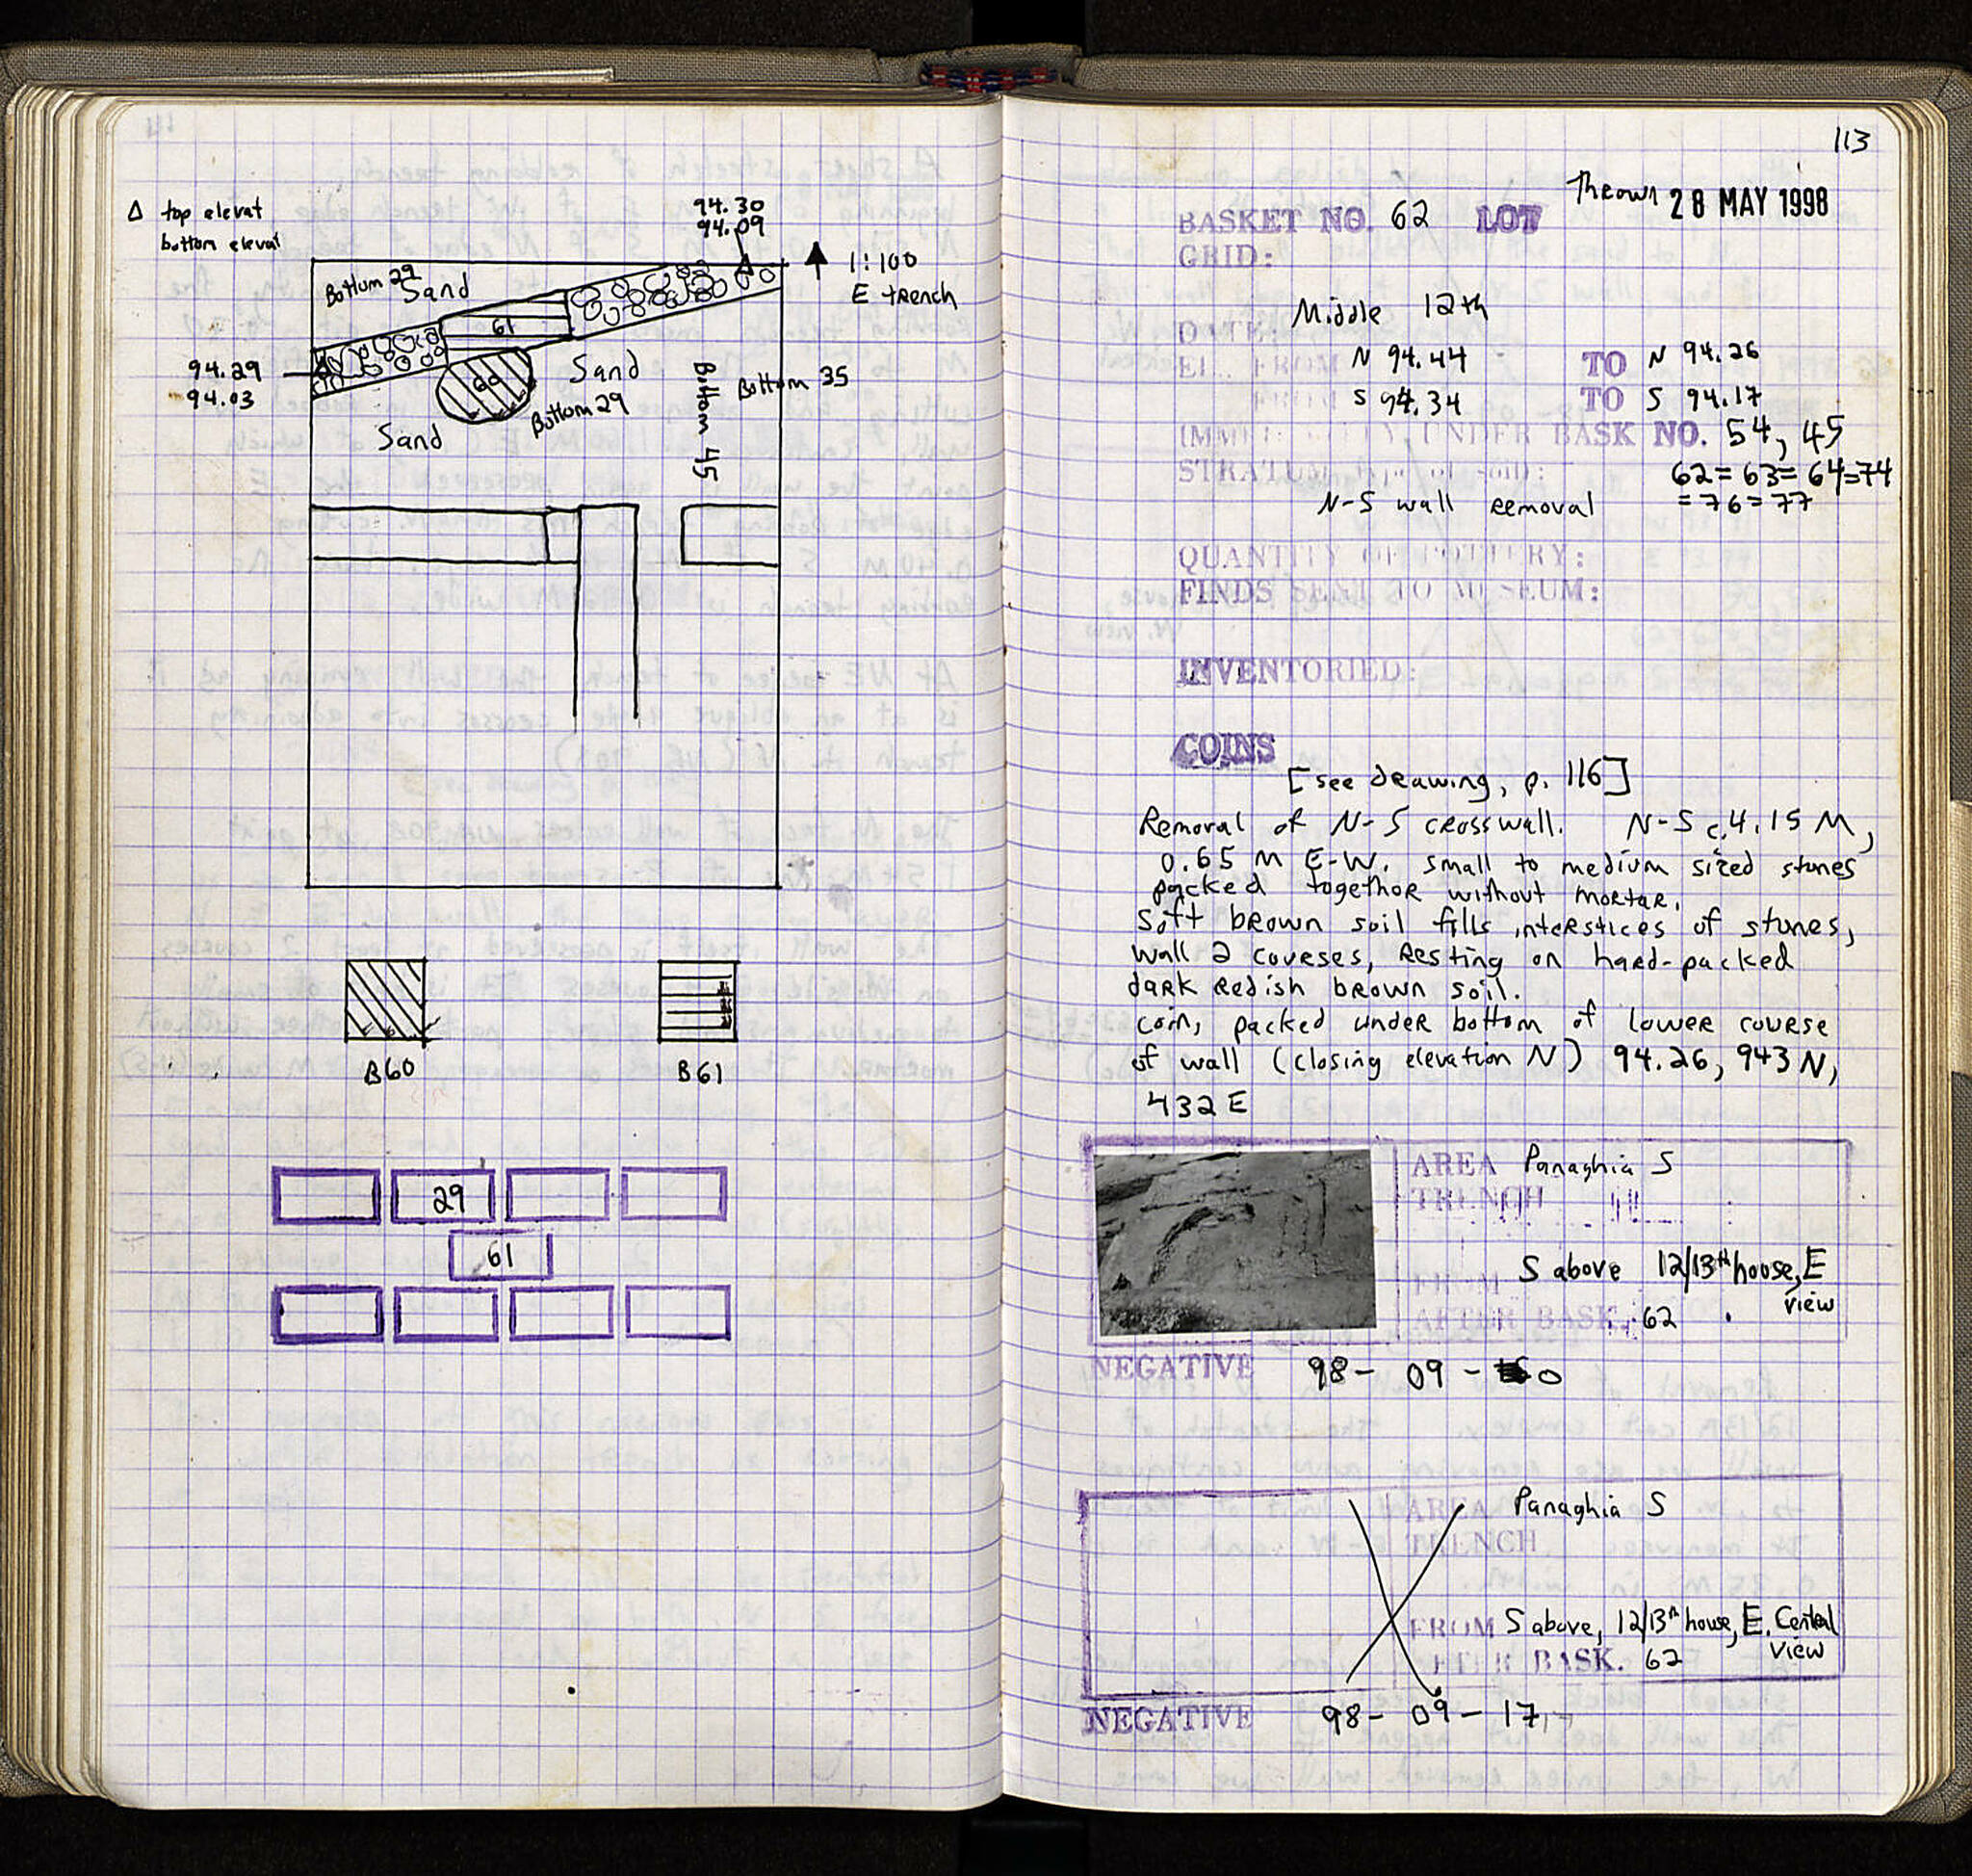 Δ top elevat
bottom elevat
94.30
94.09
1:100
E trench
Bottom 29
Sand
61
94.29
94.03
60
Sand
Bottom 29
Sand
Bottom 45
Bottom 35
B60
B61
29
61
113
Thrown 28 MAY 1998
BASKET NO. 62 LOT
GRID:
DATE: Middle 12th
EL. FROM N 94.44 TO N 94.26
FROM S 94.34 TO S 94.17
UNDER BASK NO. 54, 45
STRATUM 62=63=64=74
=76=77
N-S wall removal
QUANTITY OF POTTERY:
FINDS SENT TO MUSEUM:
INVENTORIED:
COINS
[see drawing, p. 116]
Removal of N-S crosswall. N-S c. 4.15 M,
0.65 M E-W. small to medium sized stones
packed together without mortar.
Soft brown soil fills interstices of stones,
wall 2 courses, resting on hard-packed
dark redish brown soil.
coin, packed under bottom of lower course
of wall (closing elevation N) 94.26, 943 N,
432 E
AREA Panaghia S
TRENCH
FROM S above 12/13th house, E
view
AFTER BASK. 62
NEGATIVE 98- 09 - 0
AREA Panaghia S
TRENCH
FROM S above, 12/13th house, E. Central
view
AFTER BASK. 62
NEGATIVE 98- 09 - 17